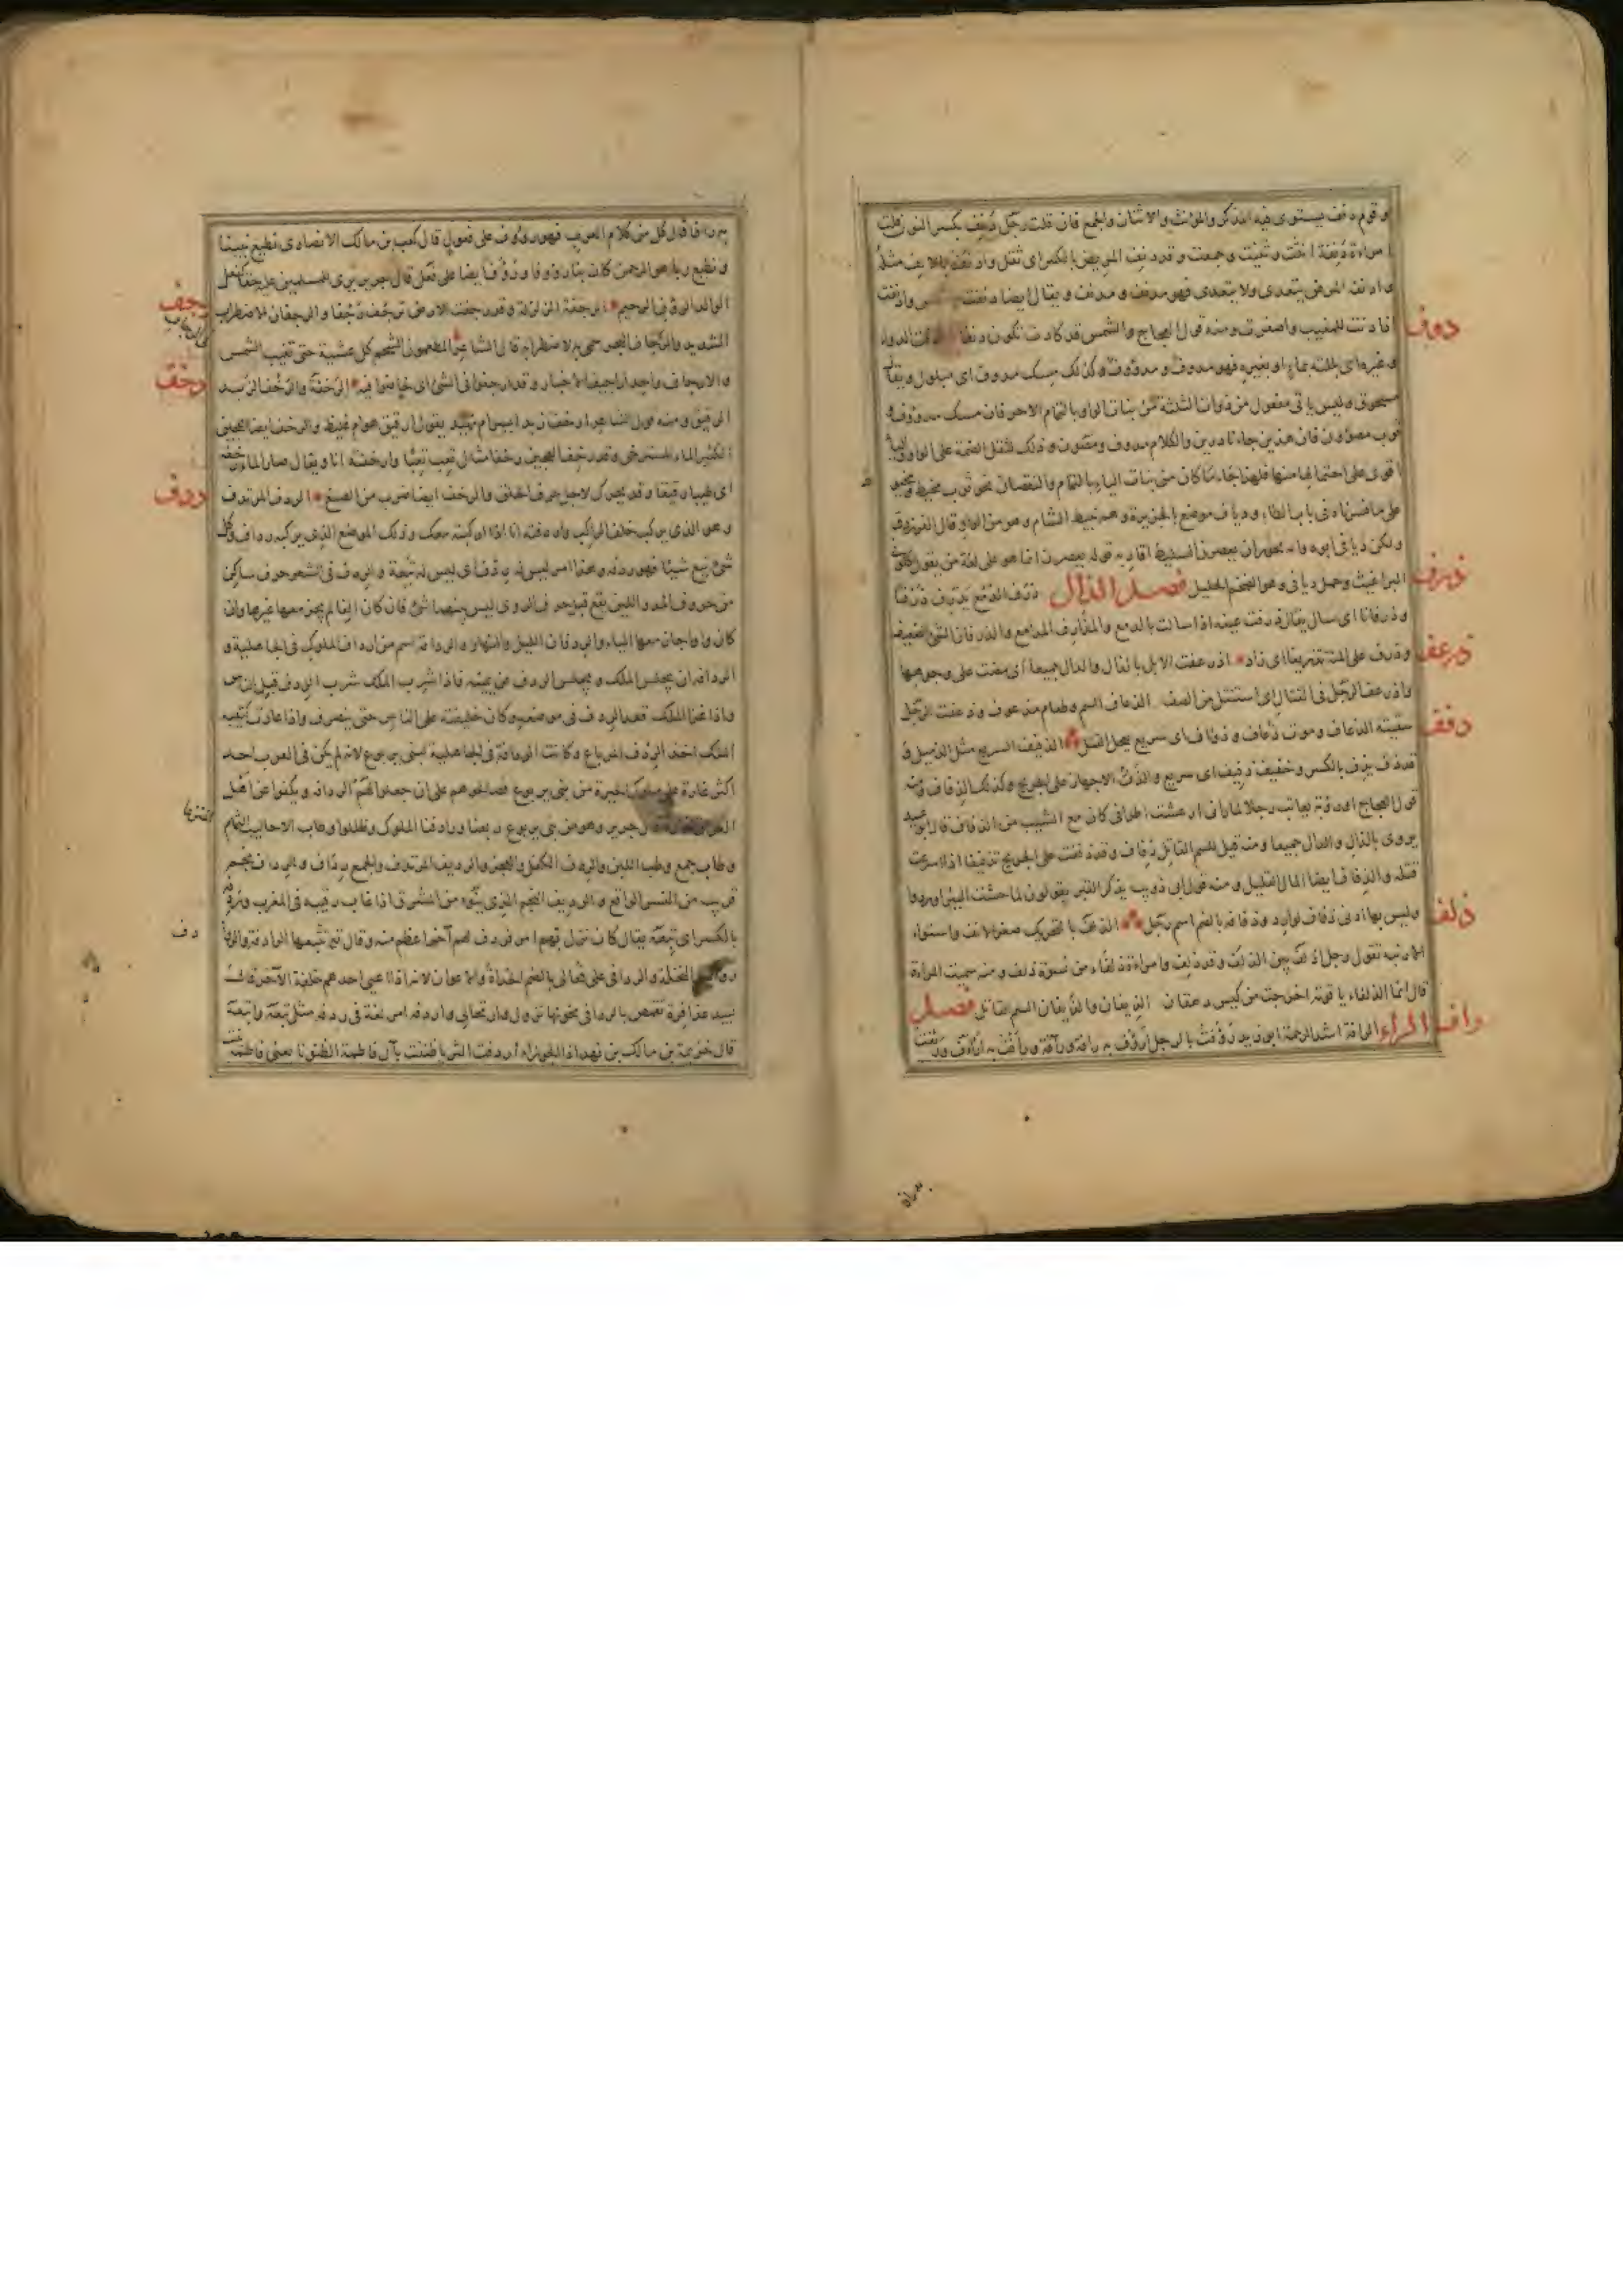 وقوم دنف يستوى فيه المذكر والمؤنث والاثنان والجمع فان قلت رجل دنف بكسر النون قلت
امراة دنفة انثت وثنيت وجمعت وقد دنف المريض بالكسر اى ثقل وادنف بالالف مثله
وادنفه المرض يتعدى ولا يتعدى فهو مدنف ومدنف ويقال ايضا دنفت الشمس وادنفت
اذا دنت للمغيب واصفرت ومنه قول العجاج والشمس قد كادت تكون دنفا الدواء
دوف
وغيره اى بللته بماء او بغيره فهو مدوف ومدووف وكذلك مسك مدوف اى مبلول ويقال
مسحوق وليس ياتى مفعول من ذوات الثلثة من بنات الواو بالتمام الا حرفان مسك مدووف و
ثوب مصوون فان هذين جاءا نادرين والكلام مدوف ومصون وذلك لثقل الضمة على الواو والياء
اقوى على احتمالها منها فلهذا جاء ما كان من بنات الياء بالتمام والنقصان نحو ثوب مخيط ومخيوط
على ما فسرناه فى باب الطاء ودياف موضع بالجزيرة وهم نبيط الشام وهو من الواو قال الفرزدق
ولكن ديافى ابوه وامه بحوران يعصرن السليط اقاربه قوله يعصرن انما هو على لغة من يقول اكلونى
البراغيث وجمل ديافى وهو الضخم الجليل فصل الذال ذرف الدمع يذرف ذرفا
ذرف
وذرفانا اى سال يقال ذرفت عينه اذا سالت بالدمع والمذارف المدامع والذرفان المشى الضعيف
وذرف على المئة تذريفا اى زاد اذرعفت الابل بالذال والدال جميعا اى مضت على وجوهها
ذرعف
واذرعف الرجل فى القتال اى استنتل من الصف الذعاف السم وطعام مذعوف وذعفت الرجل
سقيته الذعاف وموت ذعاف وذواف اى سريع يعجل القتل الذفيف السريع مثل الذميل و
ذفف
قد ذف يذف بالكسر وخفيف ذفيف اى سريع والذف الاجهاز على الجريح وكذلك الذفاف ومنه
قول العجاج او رؤبة يعاتب رجلا لما رانى ارعشت اطرافى كان مع الشيب من الذفاف قال ابو عبيد
يروى بالذال والدال جميعا ومنه قيل للسم القاتل ذفاف وقد ذففت على الجريح تذفيفا اذا اسرعت
قتله والذفاف ايضا الماء القليل ومنه قول ابى ذويب يذكر القبر يقولون لما جشت البئر اوردوا
وليس بها ادنى ذفاف لوارد وذفافة بالضم اسم رجل الذلف بالتحريك صغر الانف واستواء
ذلف
الارنبة تقول رجل اذلف بين الذلف وقد ذلف وامراة ذلفاء من نسوة ذلف ومنه سميت المراة
قال انما الذلفاء ياقوتة اخرجت من كيس دهقان الذيفان والذيفان السم القاتل فصل
الراء الرافة اشد الرحمة ابو زيد رؤفت بالرجل ارؤف به رافة ورآفة ورأفت به ارأف ورئفت
رأف
به رأفا قال كل من كلام العرب فهو رؤوف على فعول قال كعب بن مالك الانصارى نطيع نبينا
ونطيع ربا هو الرحمن كان بنا رؤوفا ورؤف ايضا على فعل قال جرير يرى للمسلمين عليه حقا كفعل
الوالد الرؤف الرحيم الرجفة الزلزلة وقد رجفت الارض ترجف رجفا والرجفان الاضطراب
رجف
الشديد والرجاف البحر سمى به لاضطرابه قال الشاعر المطعمون الشحم كل عشية حتى تغيب الشمس
والارجاف واحد اراجيف الاخبار وقد ارجفوا فى الشئ اى خاضوا فيه الرخفة والرخف الزبد
رخف
الرقيق ومنه قول الشاعر ارخف زبد ايسر ام نهيد يقول ارقيق هو ام غليظ والرخف ايضا العجين
الكثير الماء المسترخى وقد رخف العجين رخفا مثل تعب تعبا وارخفته انا ويقال صار الماء رخفة
اى طينا رقيقا وقد يحرك لاجل حرف الحلق والرخف ايضا ضرب من الصبغ الردف المرتدف
ردف
وهو الذى يركب خلف الراكب واردفته انا اذا اركبته معك وذلك الموضع الذى يركبه رداف وكل
شئ تبع شيئا فهو ردفه وهذا امر ليس له ردف اى ليس له تبعة والردف فى الشعر حرف ساكن
من حروف المد واللين يقع قبل حرف الروى ليس بينهما شئ فان كان الفا لم يجز معها غيرها وان
كان واوا جاز معها الياء والردفان الليل والنهار والردافة اسم من ارداف الملوك فى الجاهلية و
الردافة ان يجلس الملك ويجلس الردف عن يمينه فاذا شرب الملك شرب الردف قبل الناس
واذا غزا الملك قعد الردف فى موضعه وكان خليفته على الناس حتى ينصرف واذا عادت كتيبة
الملك اخذ الردف المرباع وكانت الردافة فى الجاهلية لبنى يربوع لانه لم يكن فى العرب احد
اكثر غارة على ملوك الحيرة من بنى يربوع فصالحوهم على ان جعلوا لهم الردافة ويكفوا عن اهل
العراق الغارة قال جرير وهو من بنى يربوع ربعنا وردافنا الملوك وظللوا وطاب الاحاليب الثمام
وطاب جمع وطب اللبن والردف الكفل والعجز والرديف المرتدف والجمع رداف والرديف نجم
قريب من النسر الواقع والرديف النجم الذى ينوء من المشرق اذا غاب رقيبه فى المغرب وردفه
بالكسر اى تبعه يقال كان نزل بهم امر فردف لهم آخر اعظم منه وقال تع تتبعها الرادفة والروا
النخلة والردافى على فعالى بالضم الحداة والاعوان لانه اذا اعيى احدهم خلفه الآخر قال
لبيد عذافرة تقمص بالردافى تخونها نزولى وارتحالى واردفه امر لغة فى ردفه مثل تبعه واتبعه
قال خزيمة بن مالك بن نهد اذا الجوزاء اردفت الثريا ظننت بآل فاطمة الظنونا يعنى فاطمة بنت